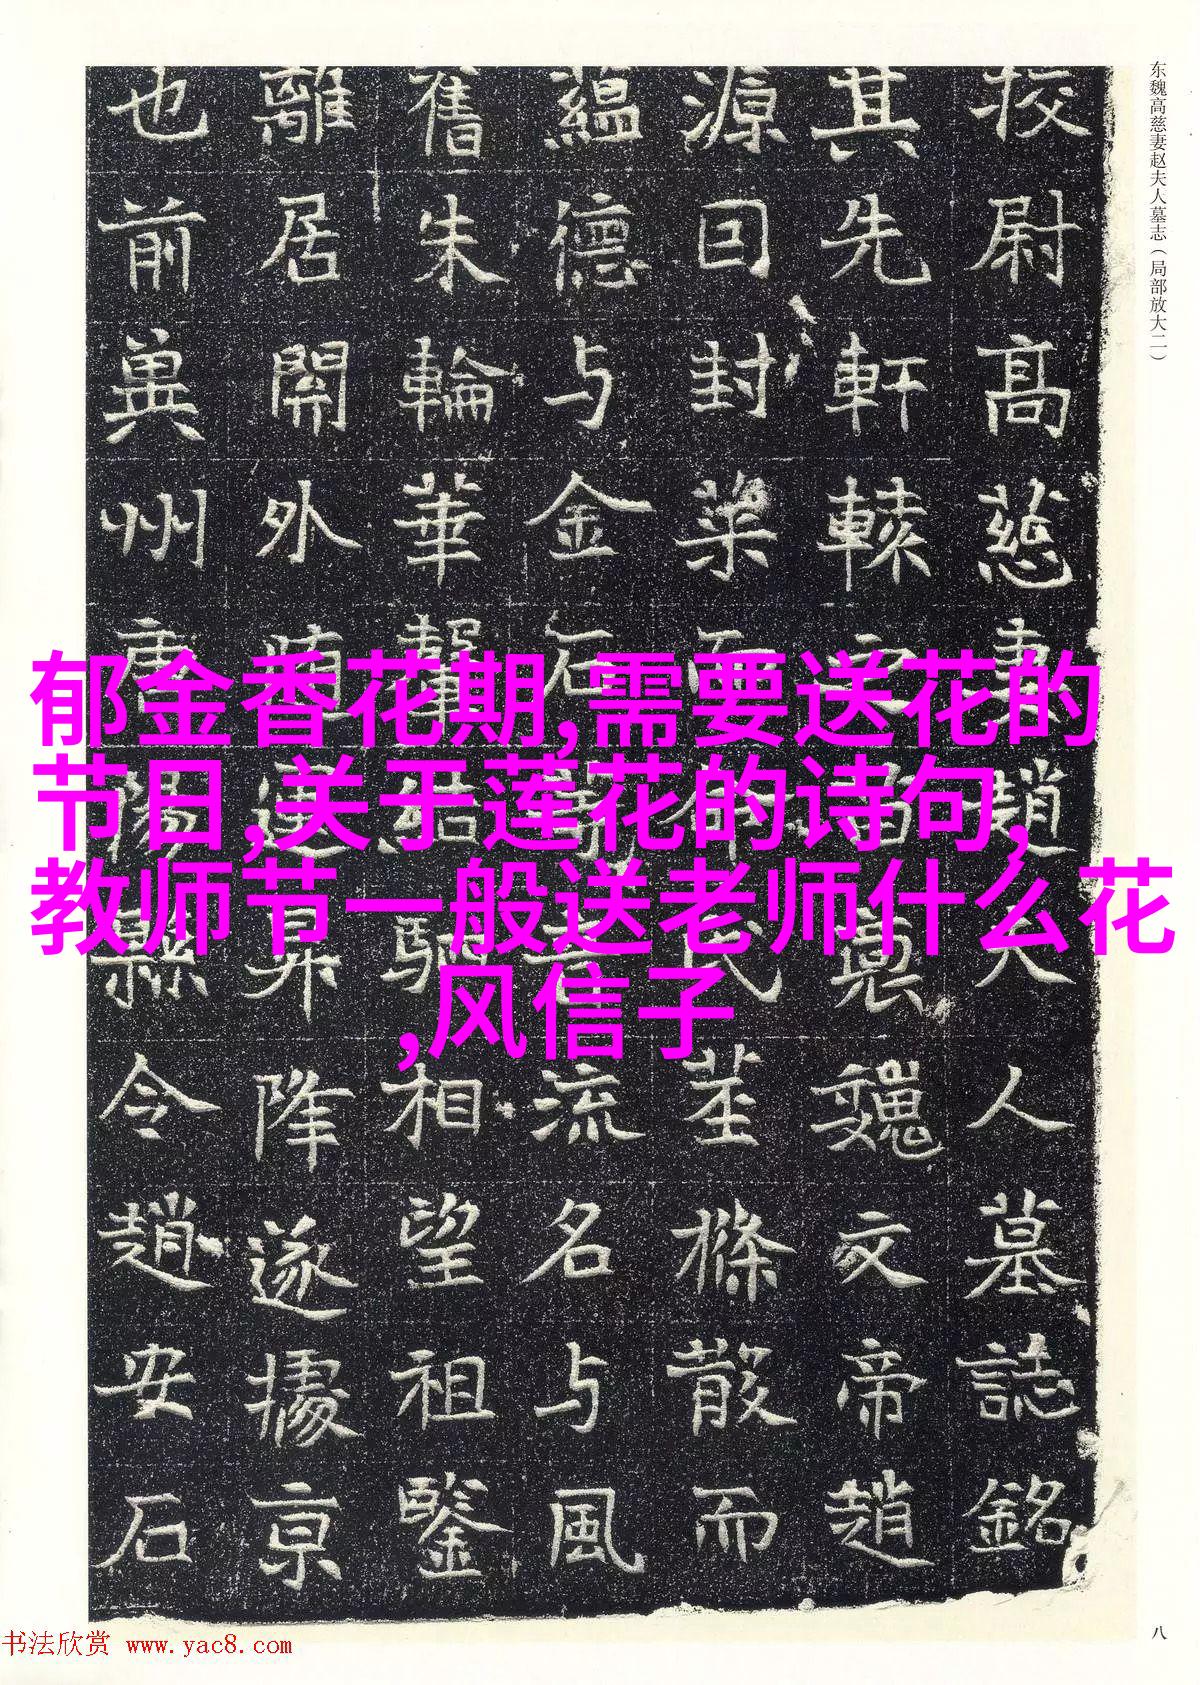 东魏高慈妻赵夫人墓志（局部放大二）
校尉高慈妻趙夫人墓誌銘
其先軒轅之苗裔魏文帝趙
源囙封而作氏莖條散而
蘊德与金石流名与風
舊朱輪華轂結駟相望祖鑒
離居開外遷昇降遂據京
也前冀州陽縣令趙安石
郁金香花期,需要送花的
节日,关于莲花的诗句,
教师节一般送老师什么花
,风信子
八
书法欣赏 www.yac8.com